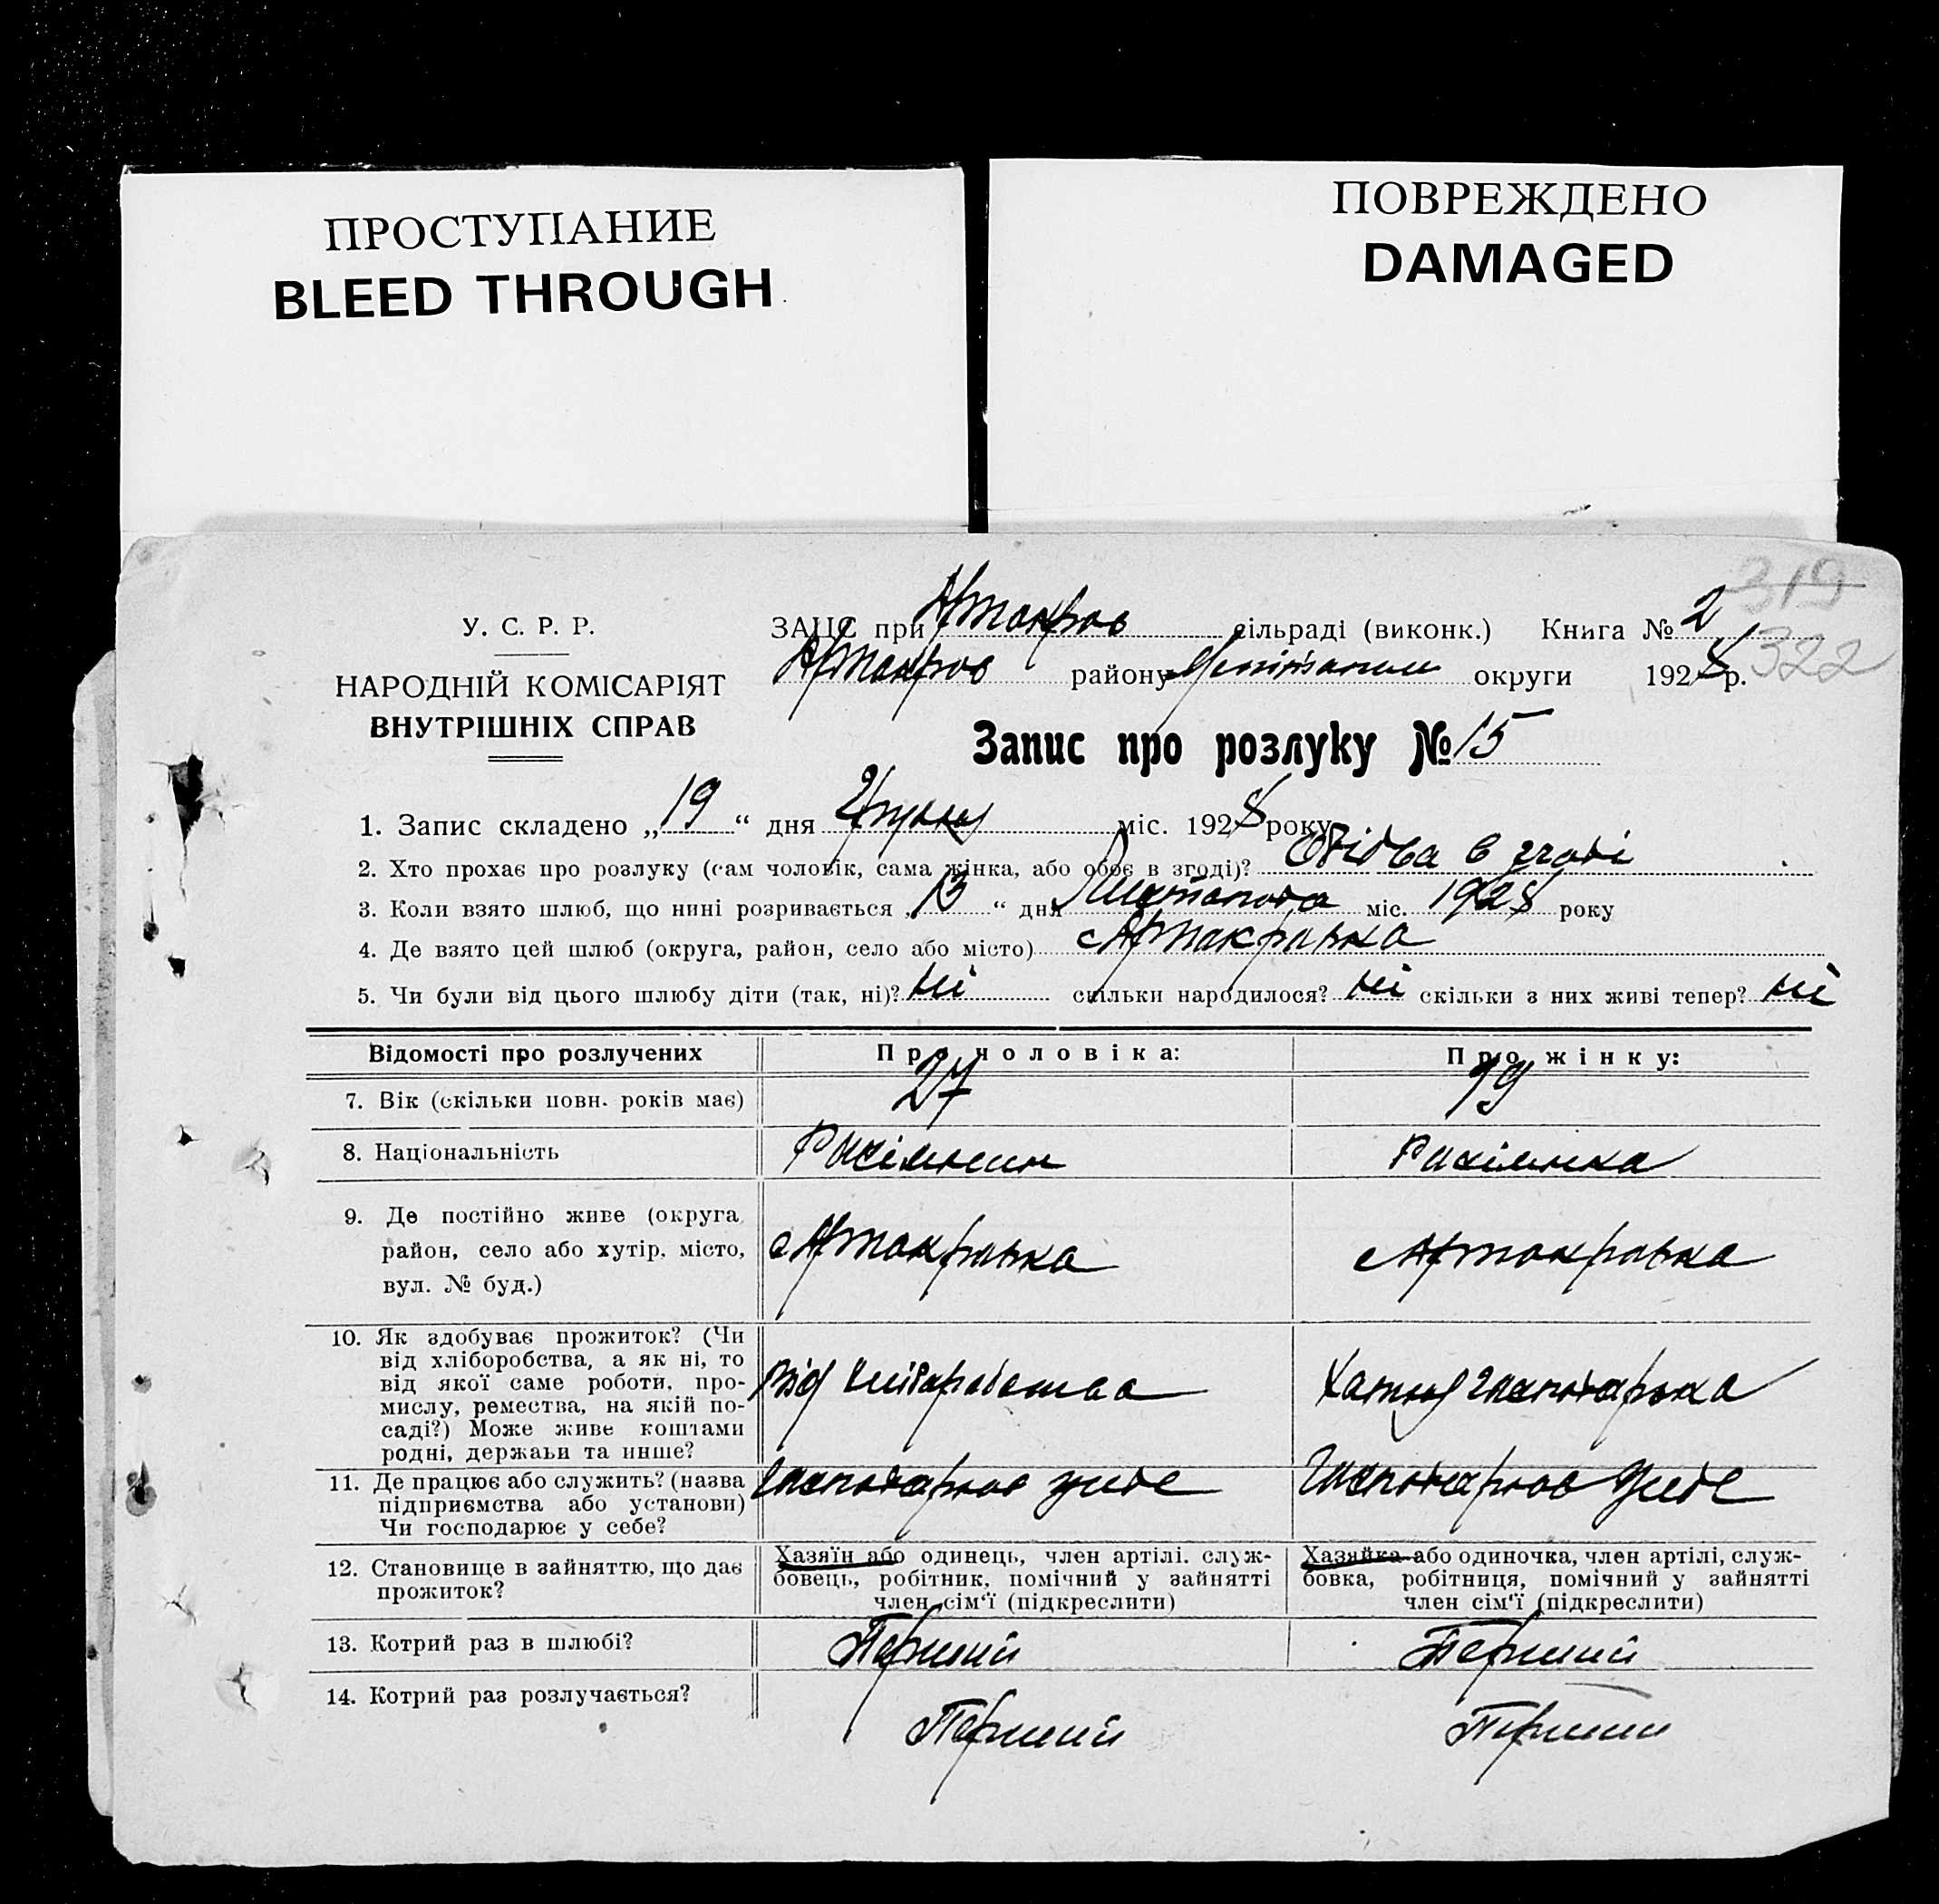 ПРОСТУПАНИЕ
BLEED THROUGH
ПОВРЕЖДЕНО
DAMAGED
319
322
У. С. Р. Р.
НАРОДНІЙ КОМІСАРІЯТ
ВНУТРІШНІХ СПРАВ
ЗАЦС при сільраді (виконк.) Книга № 2
району округи 1928 р.
Запис про розлуку № 15
1. Запис складено „19“ дня Грудня міс. 1928 року
2. Хто прохає про розлуку (сам чоловік, сама жінка, або обоє в згоді)? Обідва в згоді
3. Коли взято шлюб, що нині розривається „13“ дня Листопода міс. 1928 року
4. Де взято цей шлюб (округа, район, село або місто)
5. Чи були від цього шлюбу діти (так, ні)? ні скільки народилося? ні скільки з них живі тепер? ні
Відомості про розлучених Про чоловіка: Про жінку:
7. Вік (скільки повн. років має) 27 19
8. Національність
9. Де постійно живе (округа,
район, село або хутір, місто,
вул. № буд.)
10. Як здобуває прожиток? (Чи
від хліборобства, а як ні, то
від якої саме роботи, про-
мислу, ремества, на якій по-
саді?) Може живе коштами
родні, держави та инше?
Від хліборобства
11. Де працює або служить? (назва
підприємства або установи)
Чи господарює у себе?
12. Становище в зайняттю, що дає
прожиток?
Хазяїн або одинець, член артілі, служ-
бовець, робітник, помічний у зайнятті
член сім'ї (підкреслити)
Хазяйка або одиночка, член артілі, служ-
бовка, робітниця, помічний у зайнятті
член сім'ї (підкреслити)
13. Котрий раз в шлюбі? Перший Перший
14. Котрий раз розлучається? Перший Перший